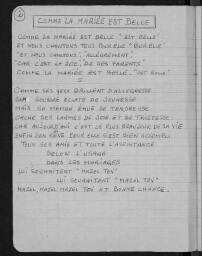 COMME LA MARIÉE EST BELLE
COMME LA MARIÉE EST BELLE "EST BELLE"
ET NOUS CHANTONS TOUS POUR ELLE "POUR ELLE"
"ET NOUS CHANTONS", "ALLÉGREMENT"
CAR C'EST LA JOIE, DE SES PARENTS"
COMME LA MARIÉE EST BELLE. "EST BELLE"
COMME SES YEUX BRILLENT D'ALLÉGRESSE
SON SOURIRE ÉCLATE DE JEUNESSE
MAIS SA MAMAN ÉMUE DE TENDRESSE
CACHE DES LARMES DE JOIE ET DE TRISTESSE
CAR AUJOURD'HUI C'EST LE PLUS BEAU JOUR DE SA VIE
ENFIN SON RÊVE POUR ELLE S'EST BIEN ACCOMPLI
TOUS SES AMIS ET TOUTE L'ASSISTANCE
SELON L'USAGE
DANS LES MARIAGES
LUI SOUHAITENT "MAZEL TOV"
LUI SOUHAITENT "MAZEL TOV"
MAZEL, MAZEL, MAZEL TOV ET BONNE CHANCE.